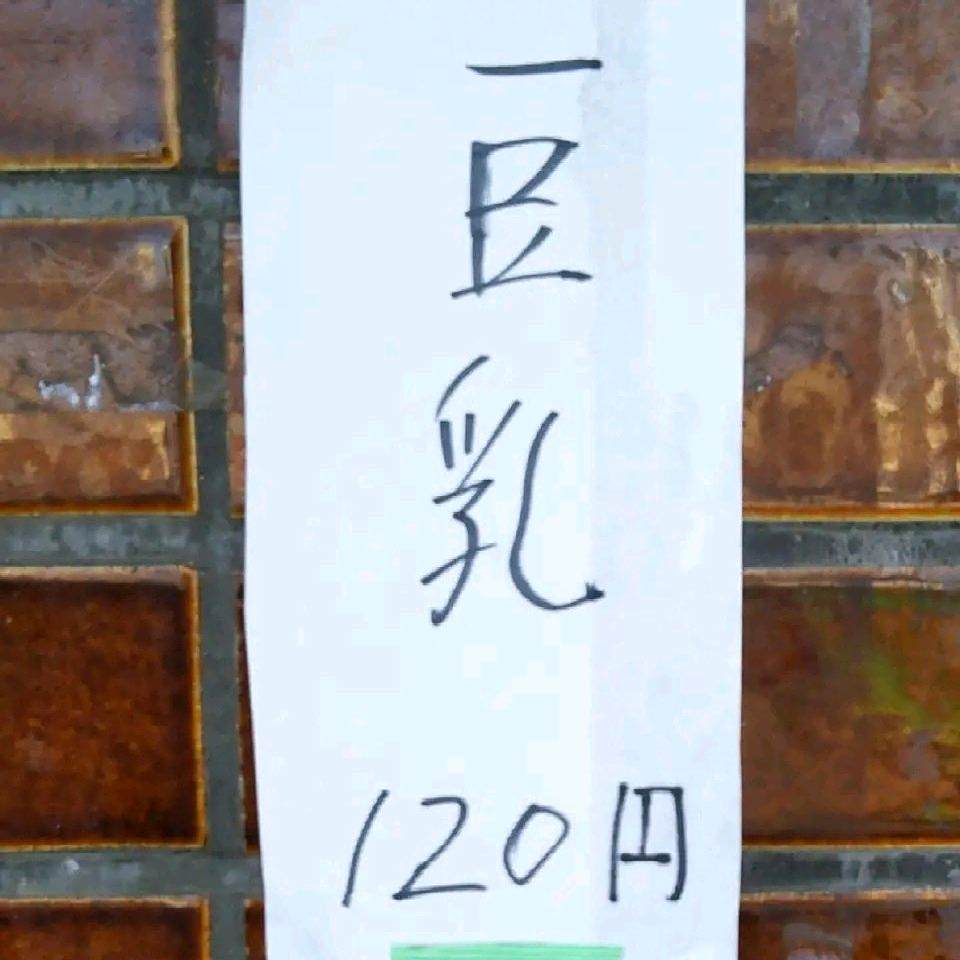 豆乳
120円